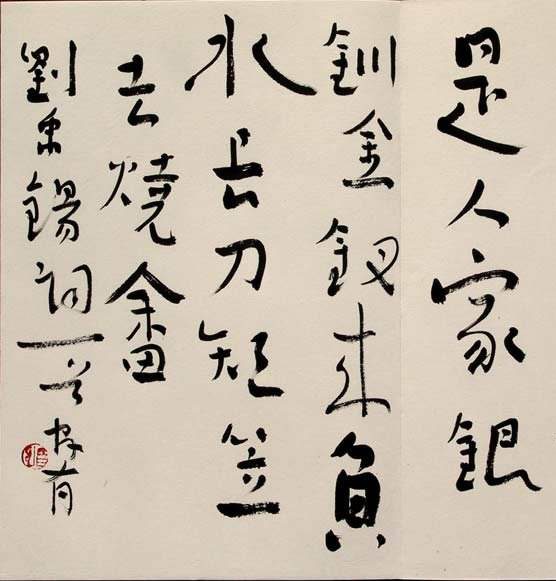 是人家銀
釧金釵來負
水長刀短笠
去燒畬
劉禹錫詞一首